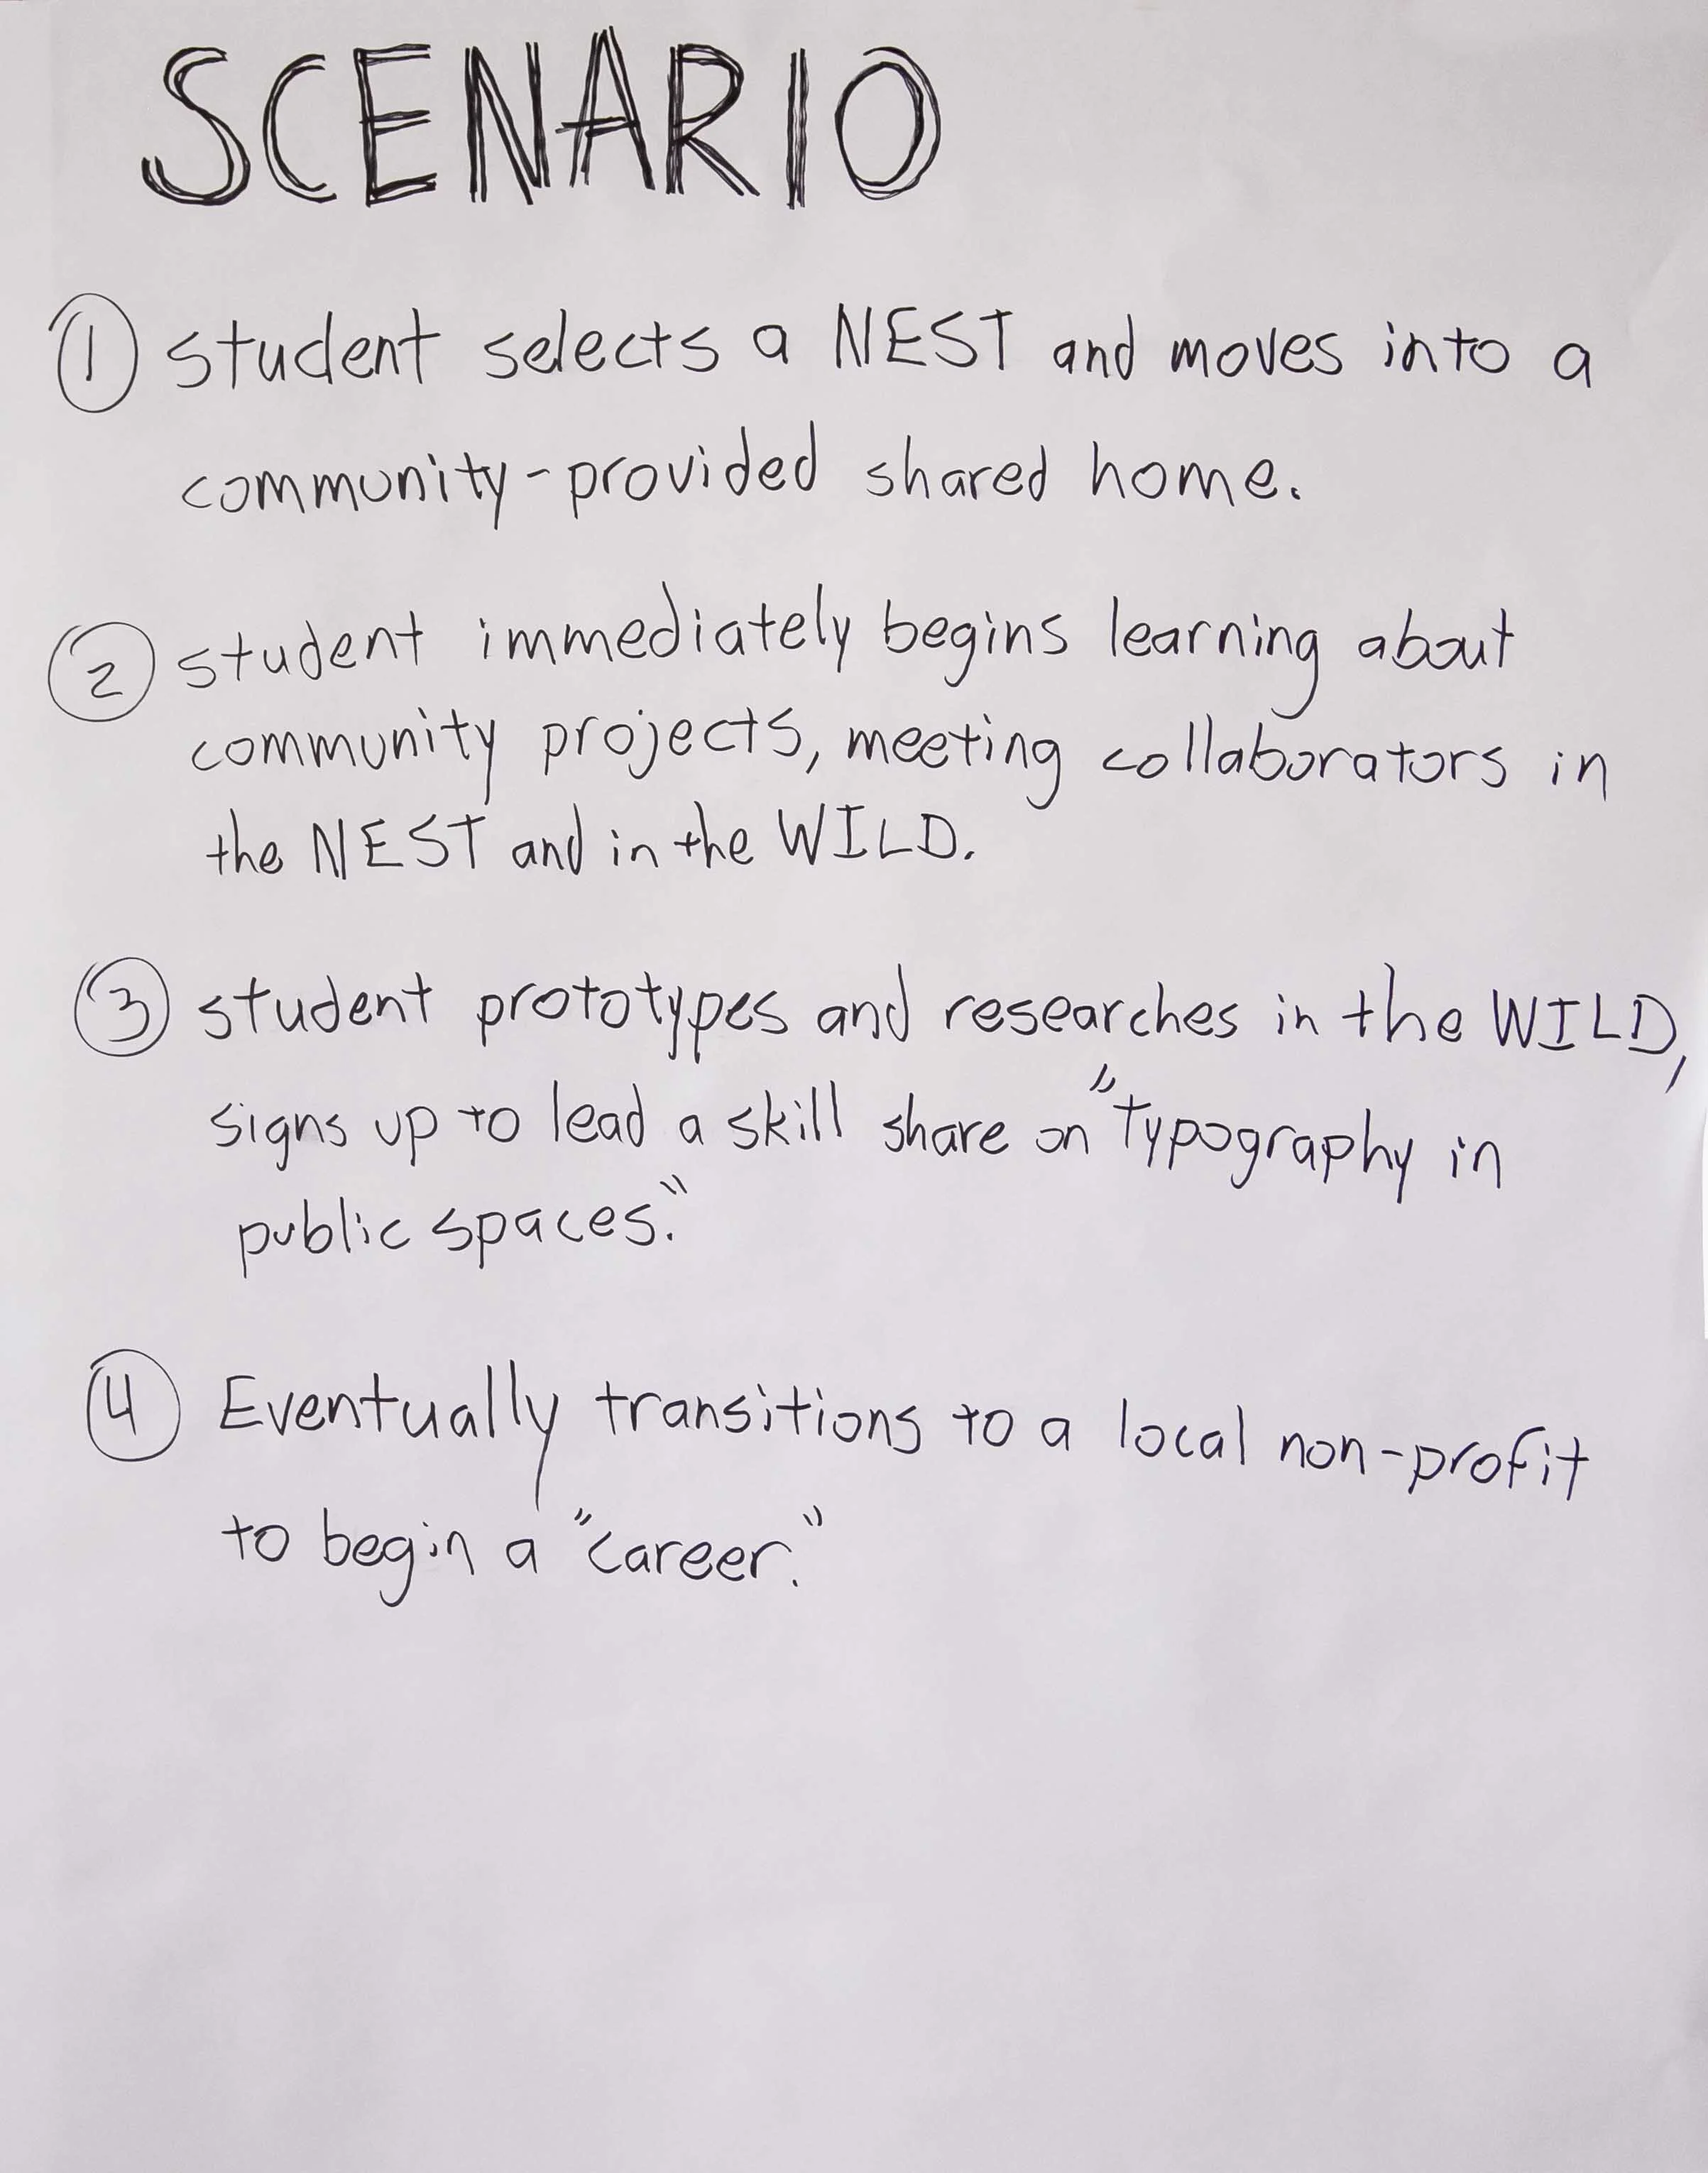 SCENARIO
1 student selects a NEST and moves into a
community-provided shared home.
2 student immediately begins learning about
community projects, meeting collaborators in
the NEST and in the WILD.
3 student prototypes and researches in the WILD,
signs up to lead a skill share on "typography in
public spaces."
4 Eventually transitions to a local non-profit
to begin a "career."